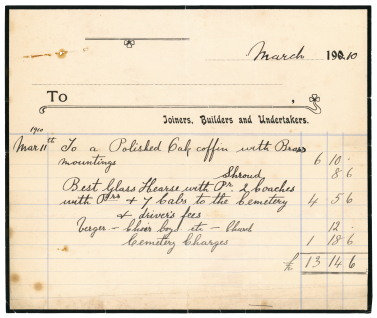 March 1910
To ,
Joiners, Builders and Undertakers.
1910
Mar. 11th To a Polished Oak coffin with Brass
mountings 6 10 .
Shroud 8 6
Best Glass Hearse with Pr. & Coaches
with Prs & 7 Cabs to the Cemetery 4 5 6
& driver's fees
Verger - Choir boys etc - Church 12 .
Cemetery Charges 1 18 6
£ 13 14 6